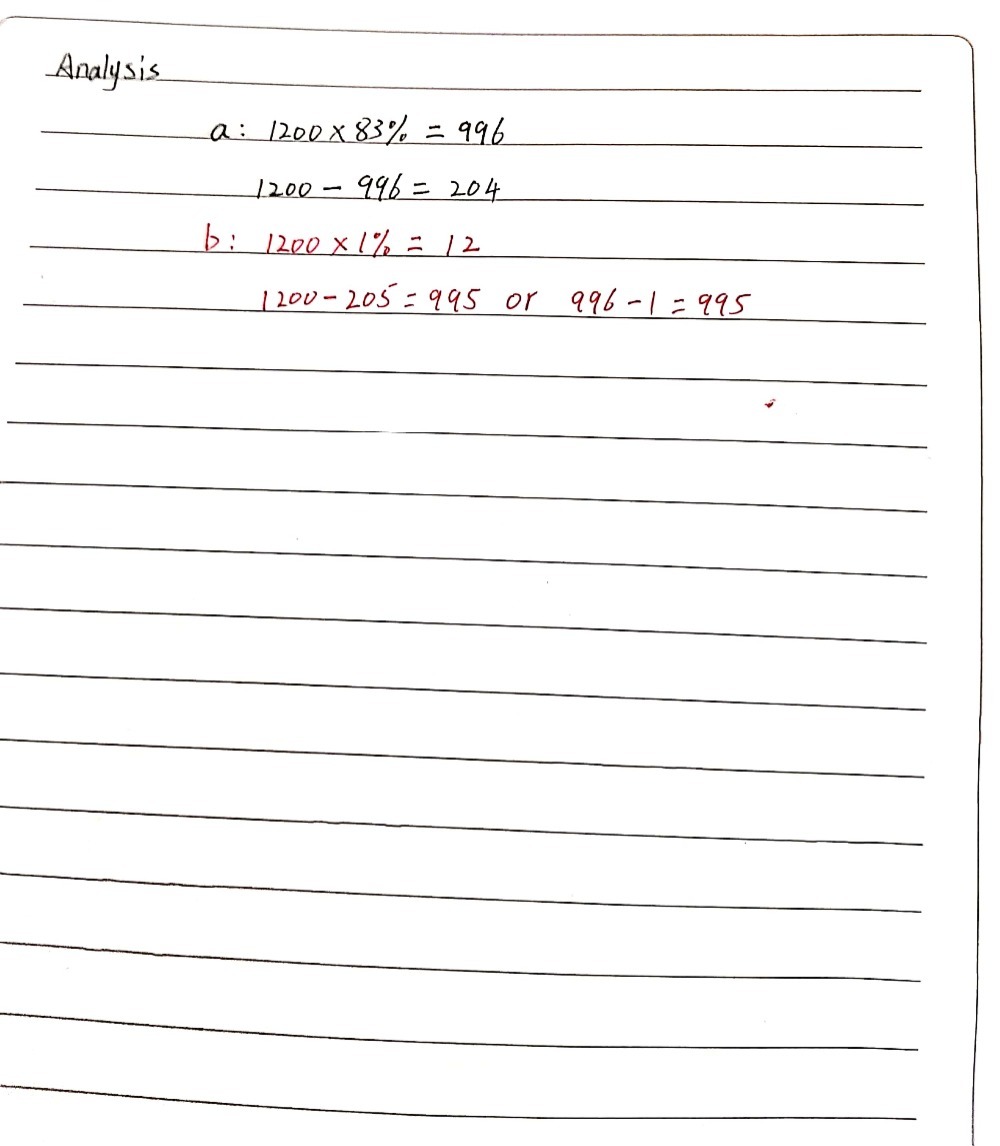 Analysis
a: 1200 × 83% = 996
1200 - 996 = 204
b: 1200 × 1% = 12
1200 - 205 = 995 or 996 - 1 = 995